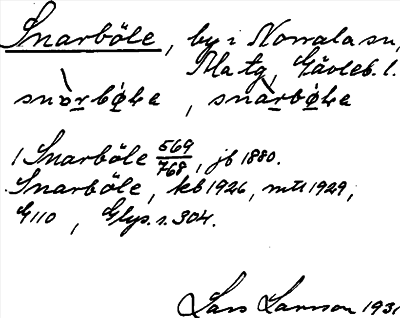 Snarböle, by i Norrala sn,
Ma tg, Gävleb. l.
snòrbǿLe, snàrbǿLe
1 Snarböle 569/768, jb 1880.
Snarböle, kb 1926, mtl 1929,
G110, Glys. s. 304.
Lars Larsson 1931